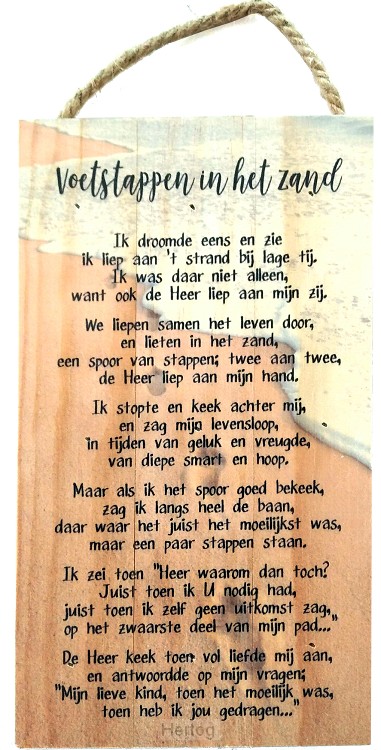 Voetstappen in het zand
Ik droomde eens en zie
ik liep aan 't strand bij lage tij.
Ik was daar niet alleen,
want ook de Heer liep aan mijn zij.
We liepen samen het leven door,
en lieten in het zand,
een spoor van stappen; twee aan twee,
de Heer liep aan mijn hand.
Ik stopte en keek achter mij,
en zag mijn levensloop,
in tijden van geluk en vreugde,
van diepe smart en hoop.
Maar als ik het spoor goed bekeek,
zag ik langs heel de baan,
daar waar het juist het moeilijkst was,
maar een paar stappen staan.
Ik zei toen "Heer waarom dan toch?
Juist toen ik U nodig had,
juist toen ik zelf geen uitkomst zag,
op het zwaarste deel van mijn pad..."
De Heer keek toen vol liefde mij aan,
en antwoordde op mijn vragen;
"Mijn lieve kind, toen het moeilijk was,
toen heb ik jou gedragen..."
Hertog